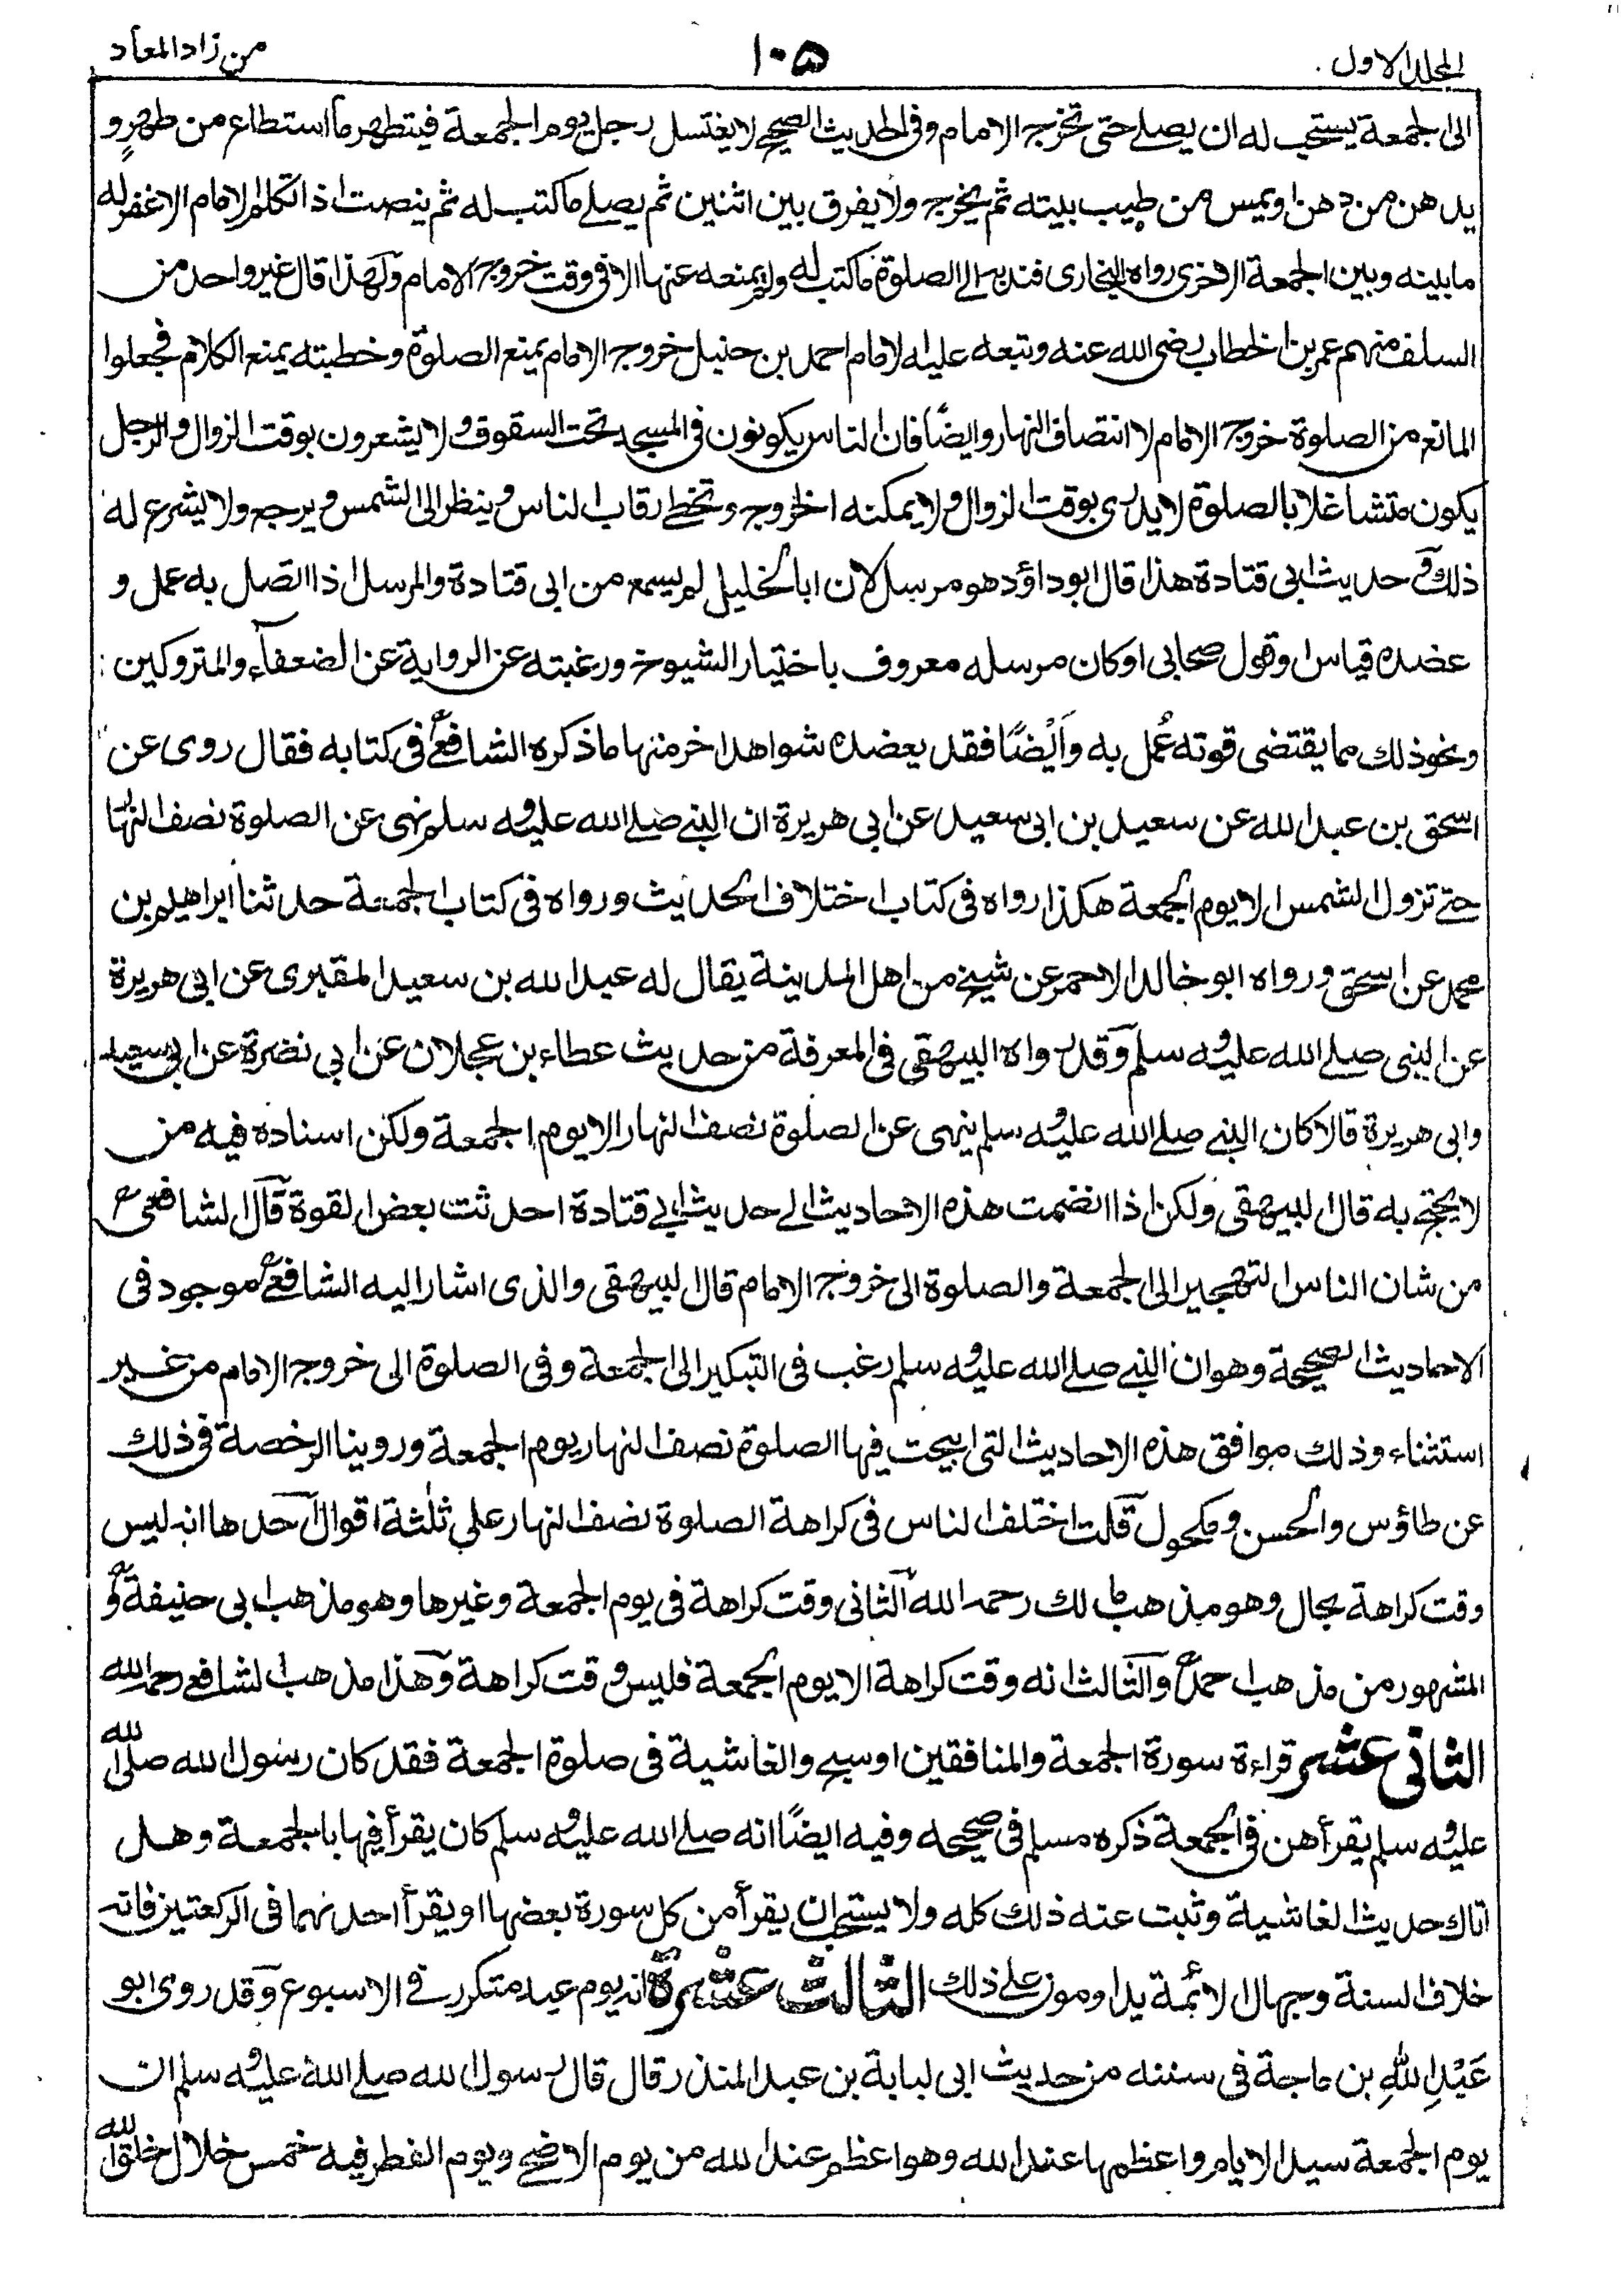 المجلد الاول.
١٠٥
من زاد المعاد
الى الجمعة يستحب له ان يصلے حتى تخرج الامام وفى الحديث الصحيح لا يغتسل رجل يوم الجمعة فيتطهر ما استطاع من طهرٍ و
يدهن من دهن او يمس من طيب بيته ثم يخرج ولا يفرق بين اثنين ثم يصلے ما كتب له ثم ينصت اذا تكلم الامام الا غفر له
ما بينه وبين الجمعة الاخرى رواه البخارى فندبه الى الصلوة ما كتب له ولم يمنعه عنها الا فى وقت خروج الامام ولهذا قال غير واحد من
السلف منهم عمر بن الخطاب رضى الله عنه وتبعه عليه الامام احمد بن حنبل خروج الامام يمنع الصلوة وخطبته يمنع الكلام فجعلوا
المانع من الصلوة خروج الامام لا انتصاف النهار وايضًا فان الناس يكونون فى المسجد تحت السقوف ولا يشعرون بوقت الزوال والرجل
يكون متشاغلا بالصلوة لا يدرى بوقت الزوال ولا يمكنه الخروج وتخطے رقاب الناس وينظر الى الشمس ويرجع ولا يشرع له
ذلك وحديث ابى قتادة هذا قال ابوداؤد هو مرسل لان ابا الخليل لم يسمع من ابى قتادة والمرسل اذا اتصل به عمل و
عضده قياس او قول صحابى او كان مرسله معروف باختيار الشيوخ ورغبته عن الرواية عن الضعفاء والمتروكين :
ونحو ذلك مما يقتضى قوته عُمل به وَاَيْضًا فقد يعضده شواهد اخر منها ما ذكره الشافعےؒ فى كتابه فقال روى عن
اسحق بن عبد الله عن سعيد بن ابى سعيد عن ابى هريرة ان النبے صلے الله عليه وسلم نهى عن الصلوة نصف النهار
حتے تزول الشمس الا يوم الجمعة هكذا رواه فى كتاب اختلاف الحديث ورواه فى كتاب الجمعة حدثنا ابراهيم بن
محمد عن اسحق ورواه ابو خالد الاحمر عن شيخ من اهل المدينة يقال له عبد الله بن سعيد المقبرى عن ابى هريرة
عن النبى صلے الله عليه وسلم وقد رواه البيهقى فى المعرفة من حديث عطاء بن عجلان عن ابى نضرة عن ابى سعيد
وابى هريرة قالا كان النبے صلے الله عليه وسلم ينهى عن الصلوة نصف النهار الا يوم الجمعة ولكن اسناده فيه من
لا يحتج به قال البيهقى ولكن اذا انضمت هذه الاحاديث الے حديث ابے قتادة احدثت بعض القوة قال الشافعىؒ
من شان الناس التهجير الى الجمعة والصلوة الى خروج الامام قال البيهقى والذى اشار اليه الشافعےؒ موجود فى
الاحاديث الصحيحة وهو ان النبے صلے الله عليه وسلم رغب فى التبكير الى الجمعة وفى الصلوة الى خروج الامام من غير
استثناء وذلك موافق هذه الاحاديث التى ابيحت فيها الصلوة نصف النهار يوم الجمعة وروينا الرخصة فى ذلك
عن طاؤس والحسن ومكحول قلت اختلف الناس فى كراهة الصلوة نصف النهار على ثلٰثة اقوال احدها انه ليس
وقت كراهة بحال وهو مذهب مالك رحمه الله الثانى وقت كراهة فى يوم الجمعة وغيرها وهو مذهب ابى حنيفةؒ و
المشهور من مذهب احمدؒ والثالث انه وقت كراهة الا يوم الجمعة فليس وقت كراهة وهذا مذهب الشافعے رحمه الله
الثانى عشر قراءة سورة الجمعة والمنافقين او سبح والغاشية فى صلوة الجمعة فقد كان رسول الله صلى الله
عليه وسلم يقرأهن فى الجمعة ذكره مسلم فى صحيحه وفيه ايضًا انه صلے الله عليه وسلم كان يقرأ فيها بالجمعة وهل
اتاك حديث الغاشية وثبت عنه ذلك كله ولا يستحب ان يقرأ من كل سورة بعضها او يقرأ احدٰهما فى الركعتين فانه
خلاف السنة وجهال الائمة يداومون على ذلك الثالث عشرة انه يوم عيد متكرر فے الاسبوع وقد روى ابو
عَبْدِ اللّٰهِ بن ماجة فى سننه من حديث ابى لبابة بن عبد المنذر قال قال رسول الله صلے الله عليه وسلم ان
يوم الجمعة سيد الايام واعظمها عند الله وهو اعظم عند الله من يوم الاضحے ويوم الفطر فيه خمس خلال خلق الله